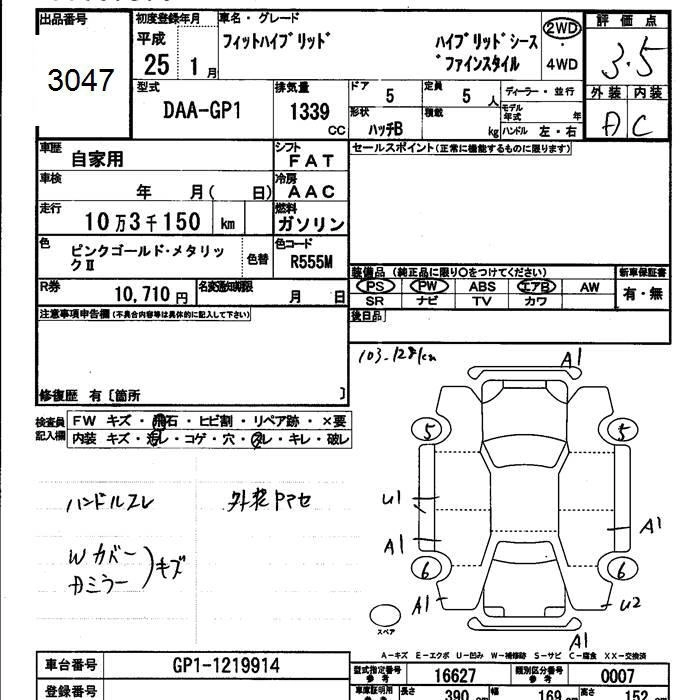 出品番号
3047
初度登録年月
平成
25 1月
車名・グレード
フィットハイブリッド
ハイブリッドシース
゛ファインスタイル
2WD
・
4WD
評価点
3.5
外装 内装
A C
型式
DAA-GP1
排気量
1339
CC
ドア
5
定員
5 人
形状
ハッチB
積載
kg
ディーラー・並行
モデル年式 年
ハンドル 左・右
車歴
自家用
シフト
FAT
車検
年 月( 日)
冷房
AAC
走行
10万3千150 km
燃料
ガソリン
色
ピンクゴールド・メタリッ
クⅡ
色替
色コード
R555M
R券
10,710円
名変通知期限
月 日
セールスポイント(正常に機能するものに限ります)
装備品(純正品に限り○をつけてください)
PS PW ABS エアB AW
SR ナビ TV カワ
新車保証書
有・無
後日品
注意事項申告欄(不具合内容等は具体的に記入して下さい)
修復歴 有〔箇所 〕
検査員
記入欄
FW キズ・飛石・ヒビ割・リペア跡・×要
内装 キズ・汚レ・コゲ・穴・スレ・キレ・破レ
ハンドルスレ
外装
Wカバー
Aミラー
キズ
A1
5
5
U1
A1
A1
6
6
A1
U2
A1
スペア
A-キズ E-エクボ U-凹み W-補修跡 S-サビ C-腐食 XX-交換済
車台番号
GP1-1219914
登録番号
型式指定番号
参考
16627
類別区分番号
参考
0007
車庫証明用
参考
長さ
390 cm
幅
169 cm
高さ
152 cm